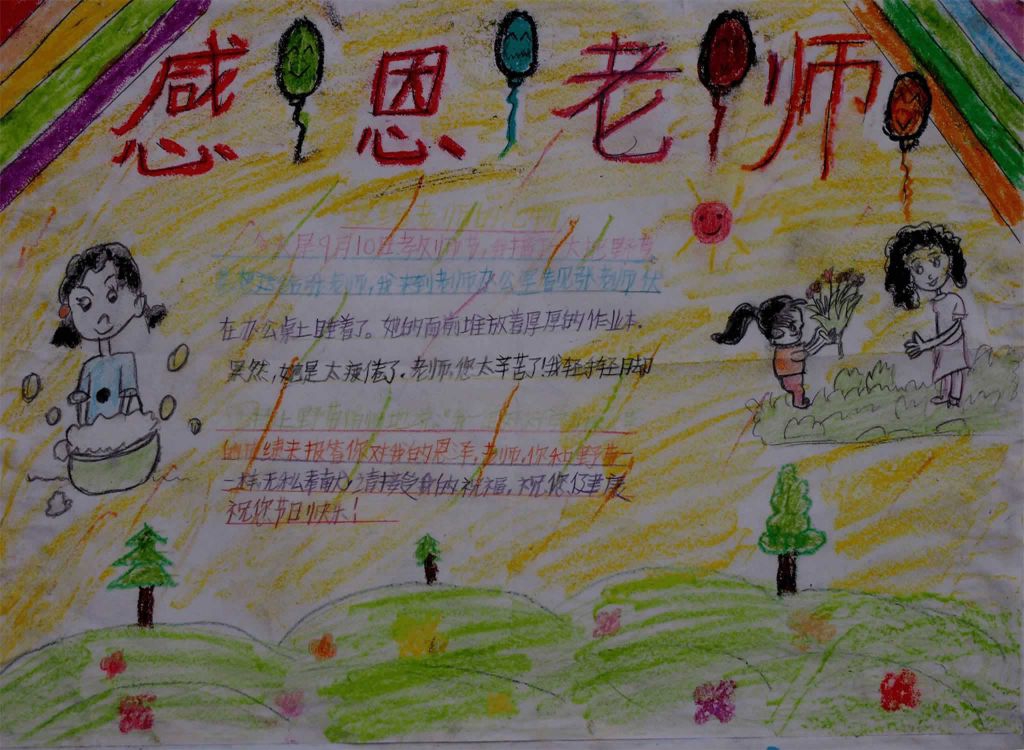 感恩老师
是9月10日教师节,我摘
张老师,我来到老师办公室看见张老师伏
在办公桌上睡着了。她的面前堆放着厚厚的作业本.
果然,她是太疲倦了.老师,您太辛苦了!我轻手轻脚
野菊
的成绩来报答你对我的恩泽,老师,你和野菊一
一样,无私奉献,请接受我的祝福,祝您健康
祝您节日快乐!